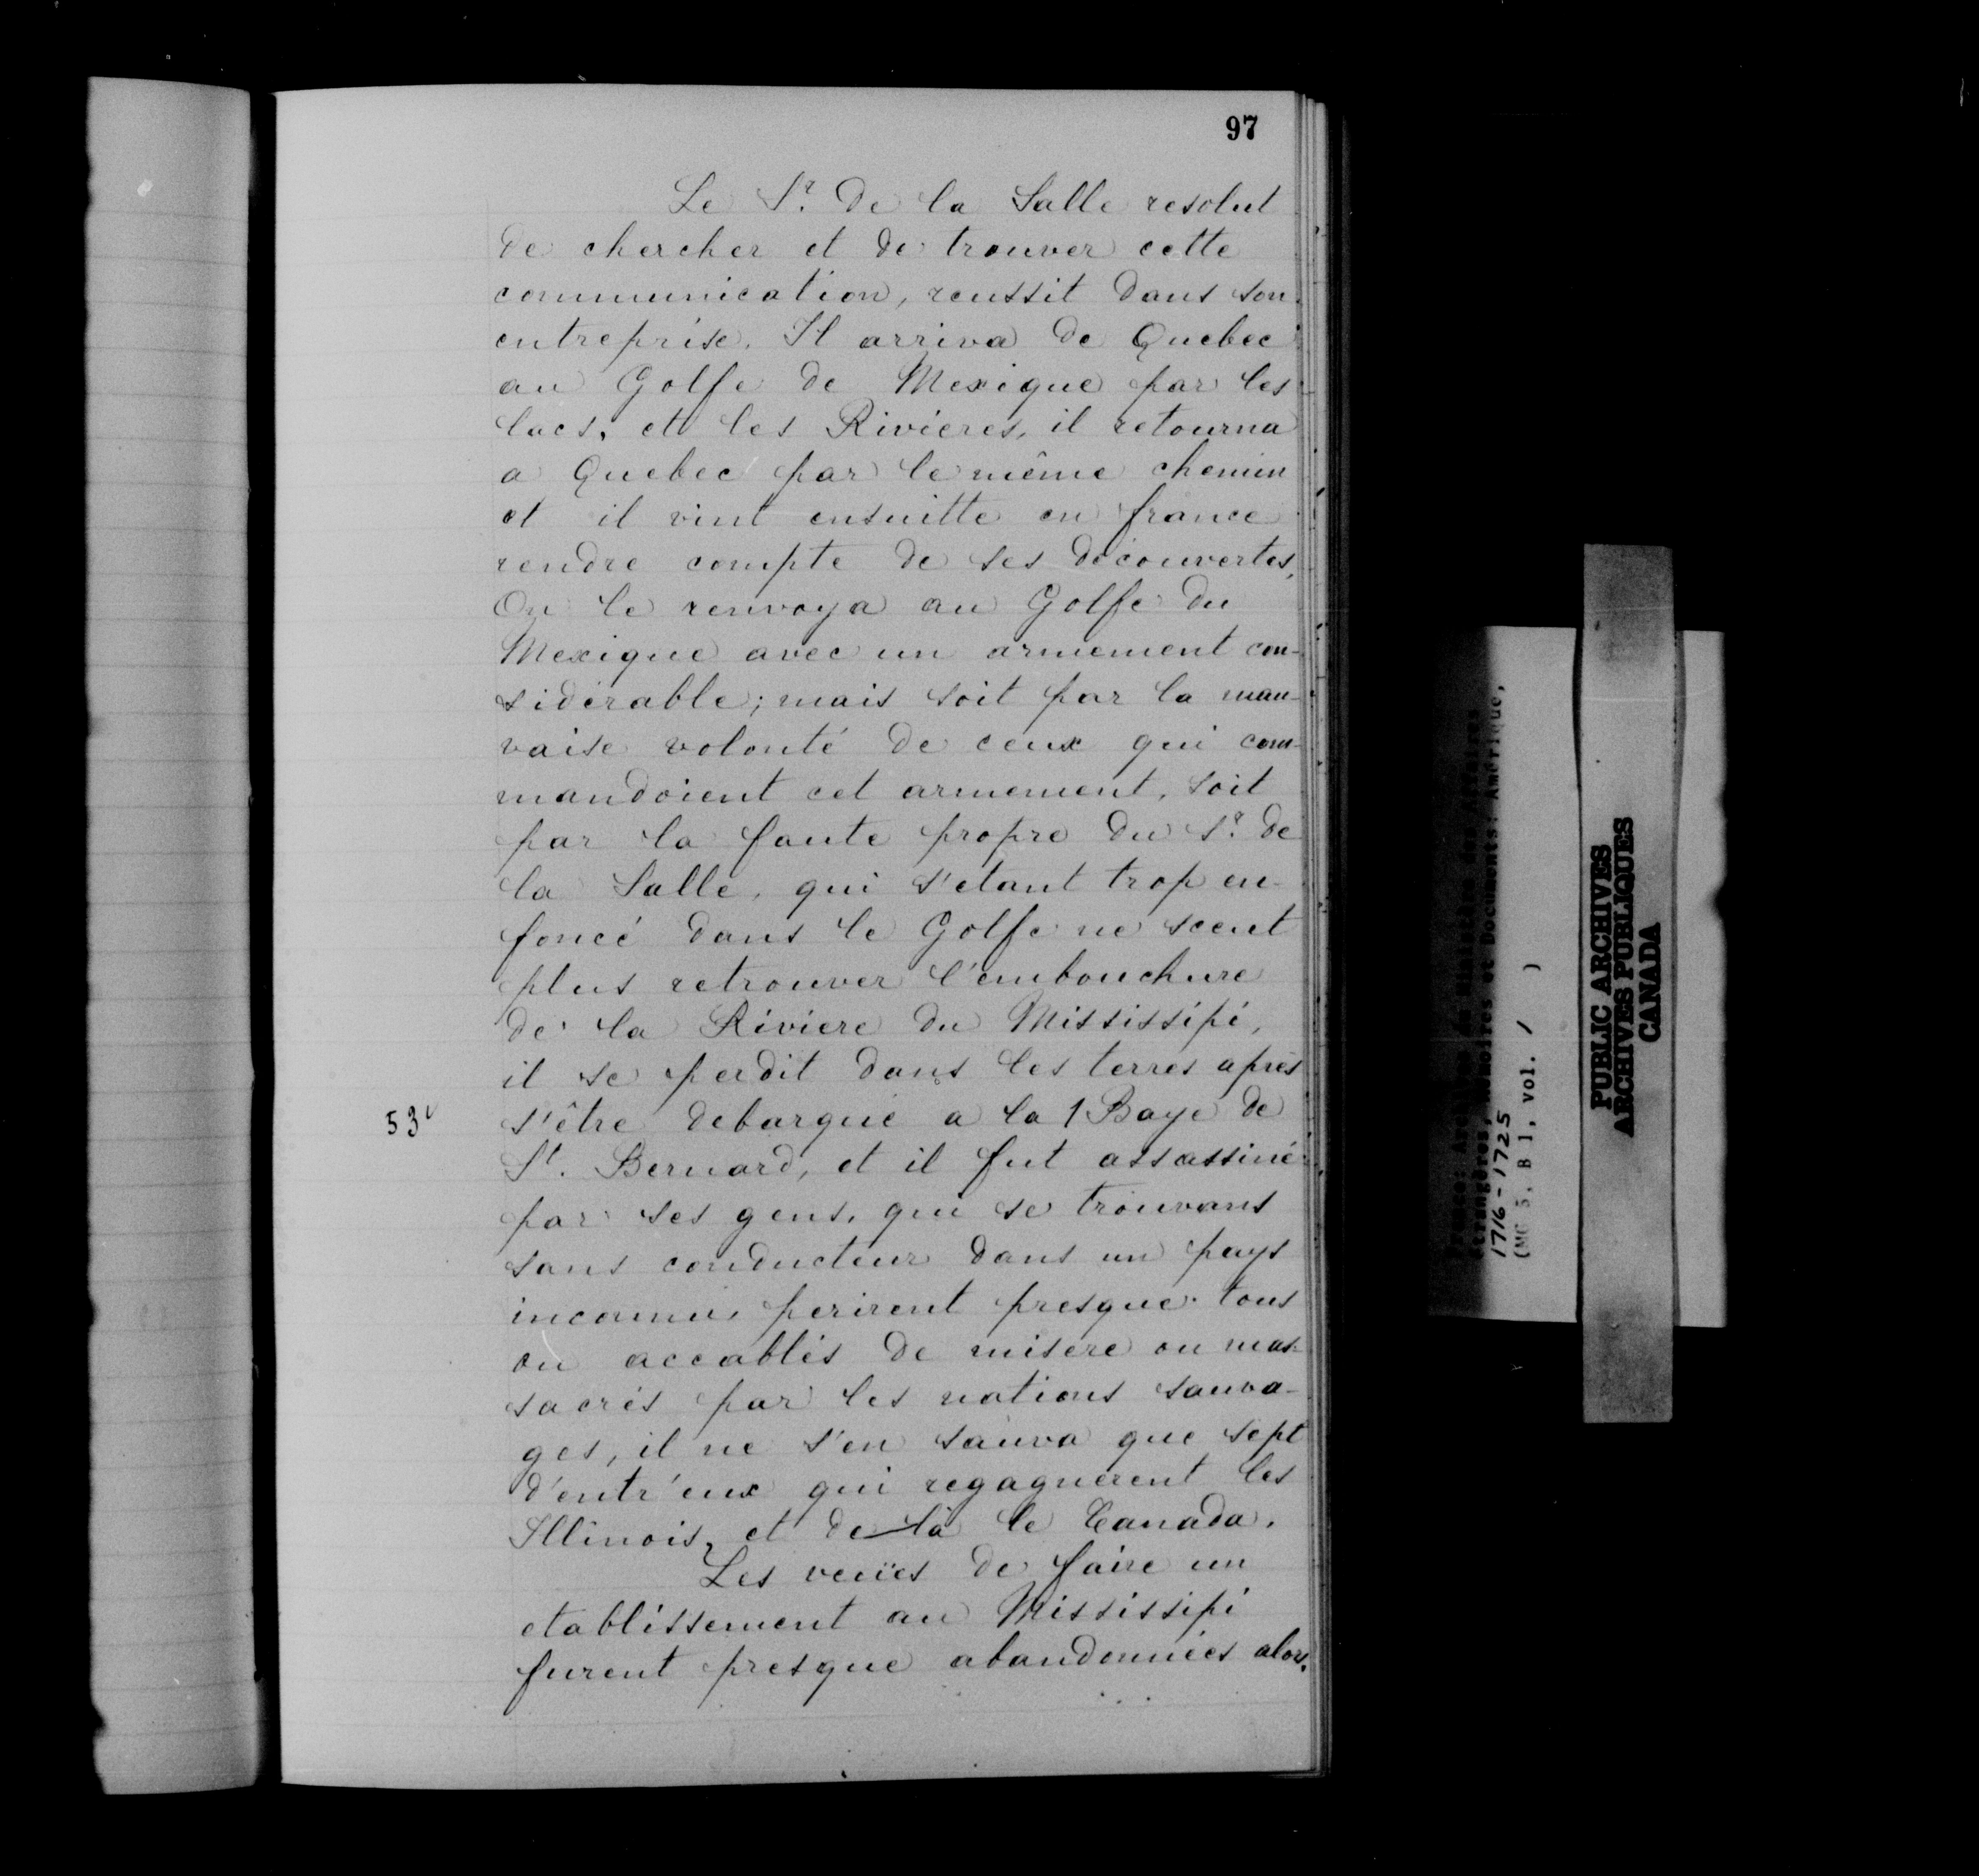 97
Le Sr. de la Salle resolut
de chercher et de trouver cette
communication, reussit dans son
entreprise. Il arriva de Quebec
au Golfe de Mexique par les
lacs, et les Rivieres, il retourna
a Quebec par le même chemin
et il vint ensuitte en france
rendre compte de ses découvertes,
On le renvoya au Golfe du
Mexique avec un armement con-
sidérable; mais soit par la mau-
vaise volonté de ceux qui com-
mandoient cet armement, soit
par la faute propre du Sr. de
la Salle, qui s'etant trop en-
foncé dans le Golfe ne sceut
plus retrouver l'embouchure
de la Riviere du Mississipi,
il se perdit dans les terres après
53v s'être debarqué a la 1 Baye de
St. Bernard, et il fut assassiné
par ses gens, qui se trouvans
sans conducteur dans un pays
inconnu, perirent presque tous
ou accablés de misere ou mas-
sacrés par les nations sauva-
ges, il ne s'en sauva que sept
d'entr'eux qui regagnerent les
Illinois, et de là le Canada.
Les veües de faire un
etablissement au Mississipi
furent presque abandonnées alors.
France: Archives du Ministère des Affaires
étrangères, Mémoires et Documents: Amérique,
1716-1725
(MG 5, B 1, vol. 1 )
PUBLIC ARCHIVES
ARCHIVES PUBLIQUES
CANADA